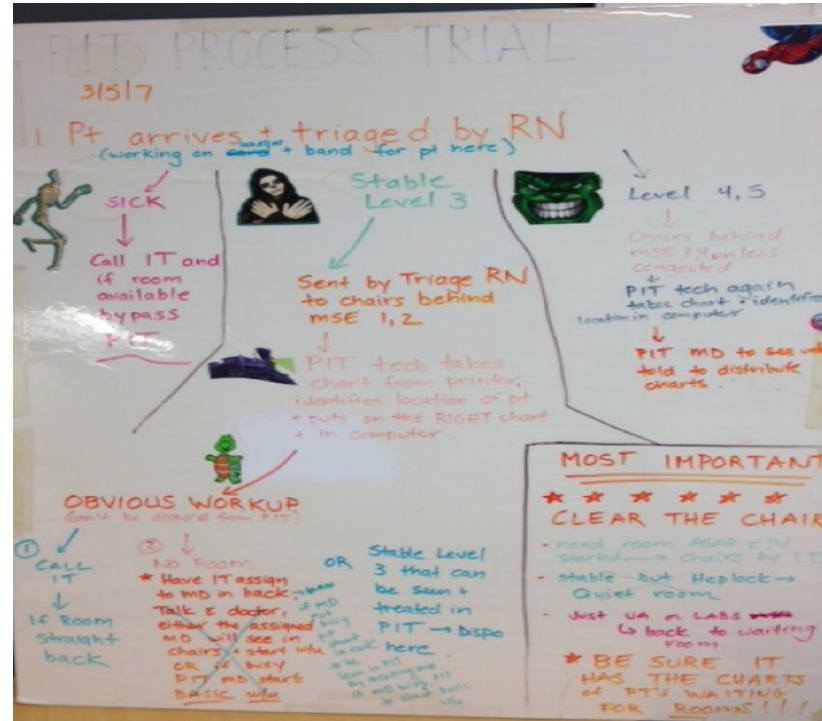 PIT PROCESS TRIAL
3/5/7
1. Pt arrives + triaged by RN
(working on + band for pt here)
SICK
Call IT and
if room
available
bypass
PIT
Stable
Level 3
Sent by Triage RN
to chairs behind
MSE 1,2
PIT tech takes
chart from printer,
identifies location of pt
+ puts on the RIGHT chart
+ in computer.
Level 4,5
Chairs behind
MSE 3,4 unless
congested
PIT tech again
takes chart + identifies
location in computer
PIT MD to see
told to distribute
charts.
OBVIOUS WORKUP
(can't be dispo'd from PIT)
① CALL
IT
If Room
straight
back
② No Room
★ Have IT assign
to MD in back
Talk c̄ doctor,
either the assigned
MD will see in
chairs + start w/u
OR if busy
PIT MD starts
BASIC w/u
if MD
not
busy
OR
Stable Level
3 that can
be seen +
treated in
PIT → Dispo
here.
MOST IMPORTANT
★ ★ ★ ★ ★ ★
CLEAR THE CHAIR
- need room ASAP c̄ IV
started → chairs by IT
- stable but Heplock →
Quiet room
- Just UA or LABS
↳ back to waiting
room
★ BE SURE IT
HAS THE CHARTS
of PT'S WAITING
FOR ROOMS!!!